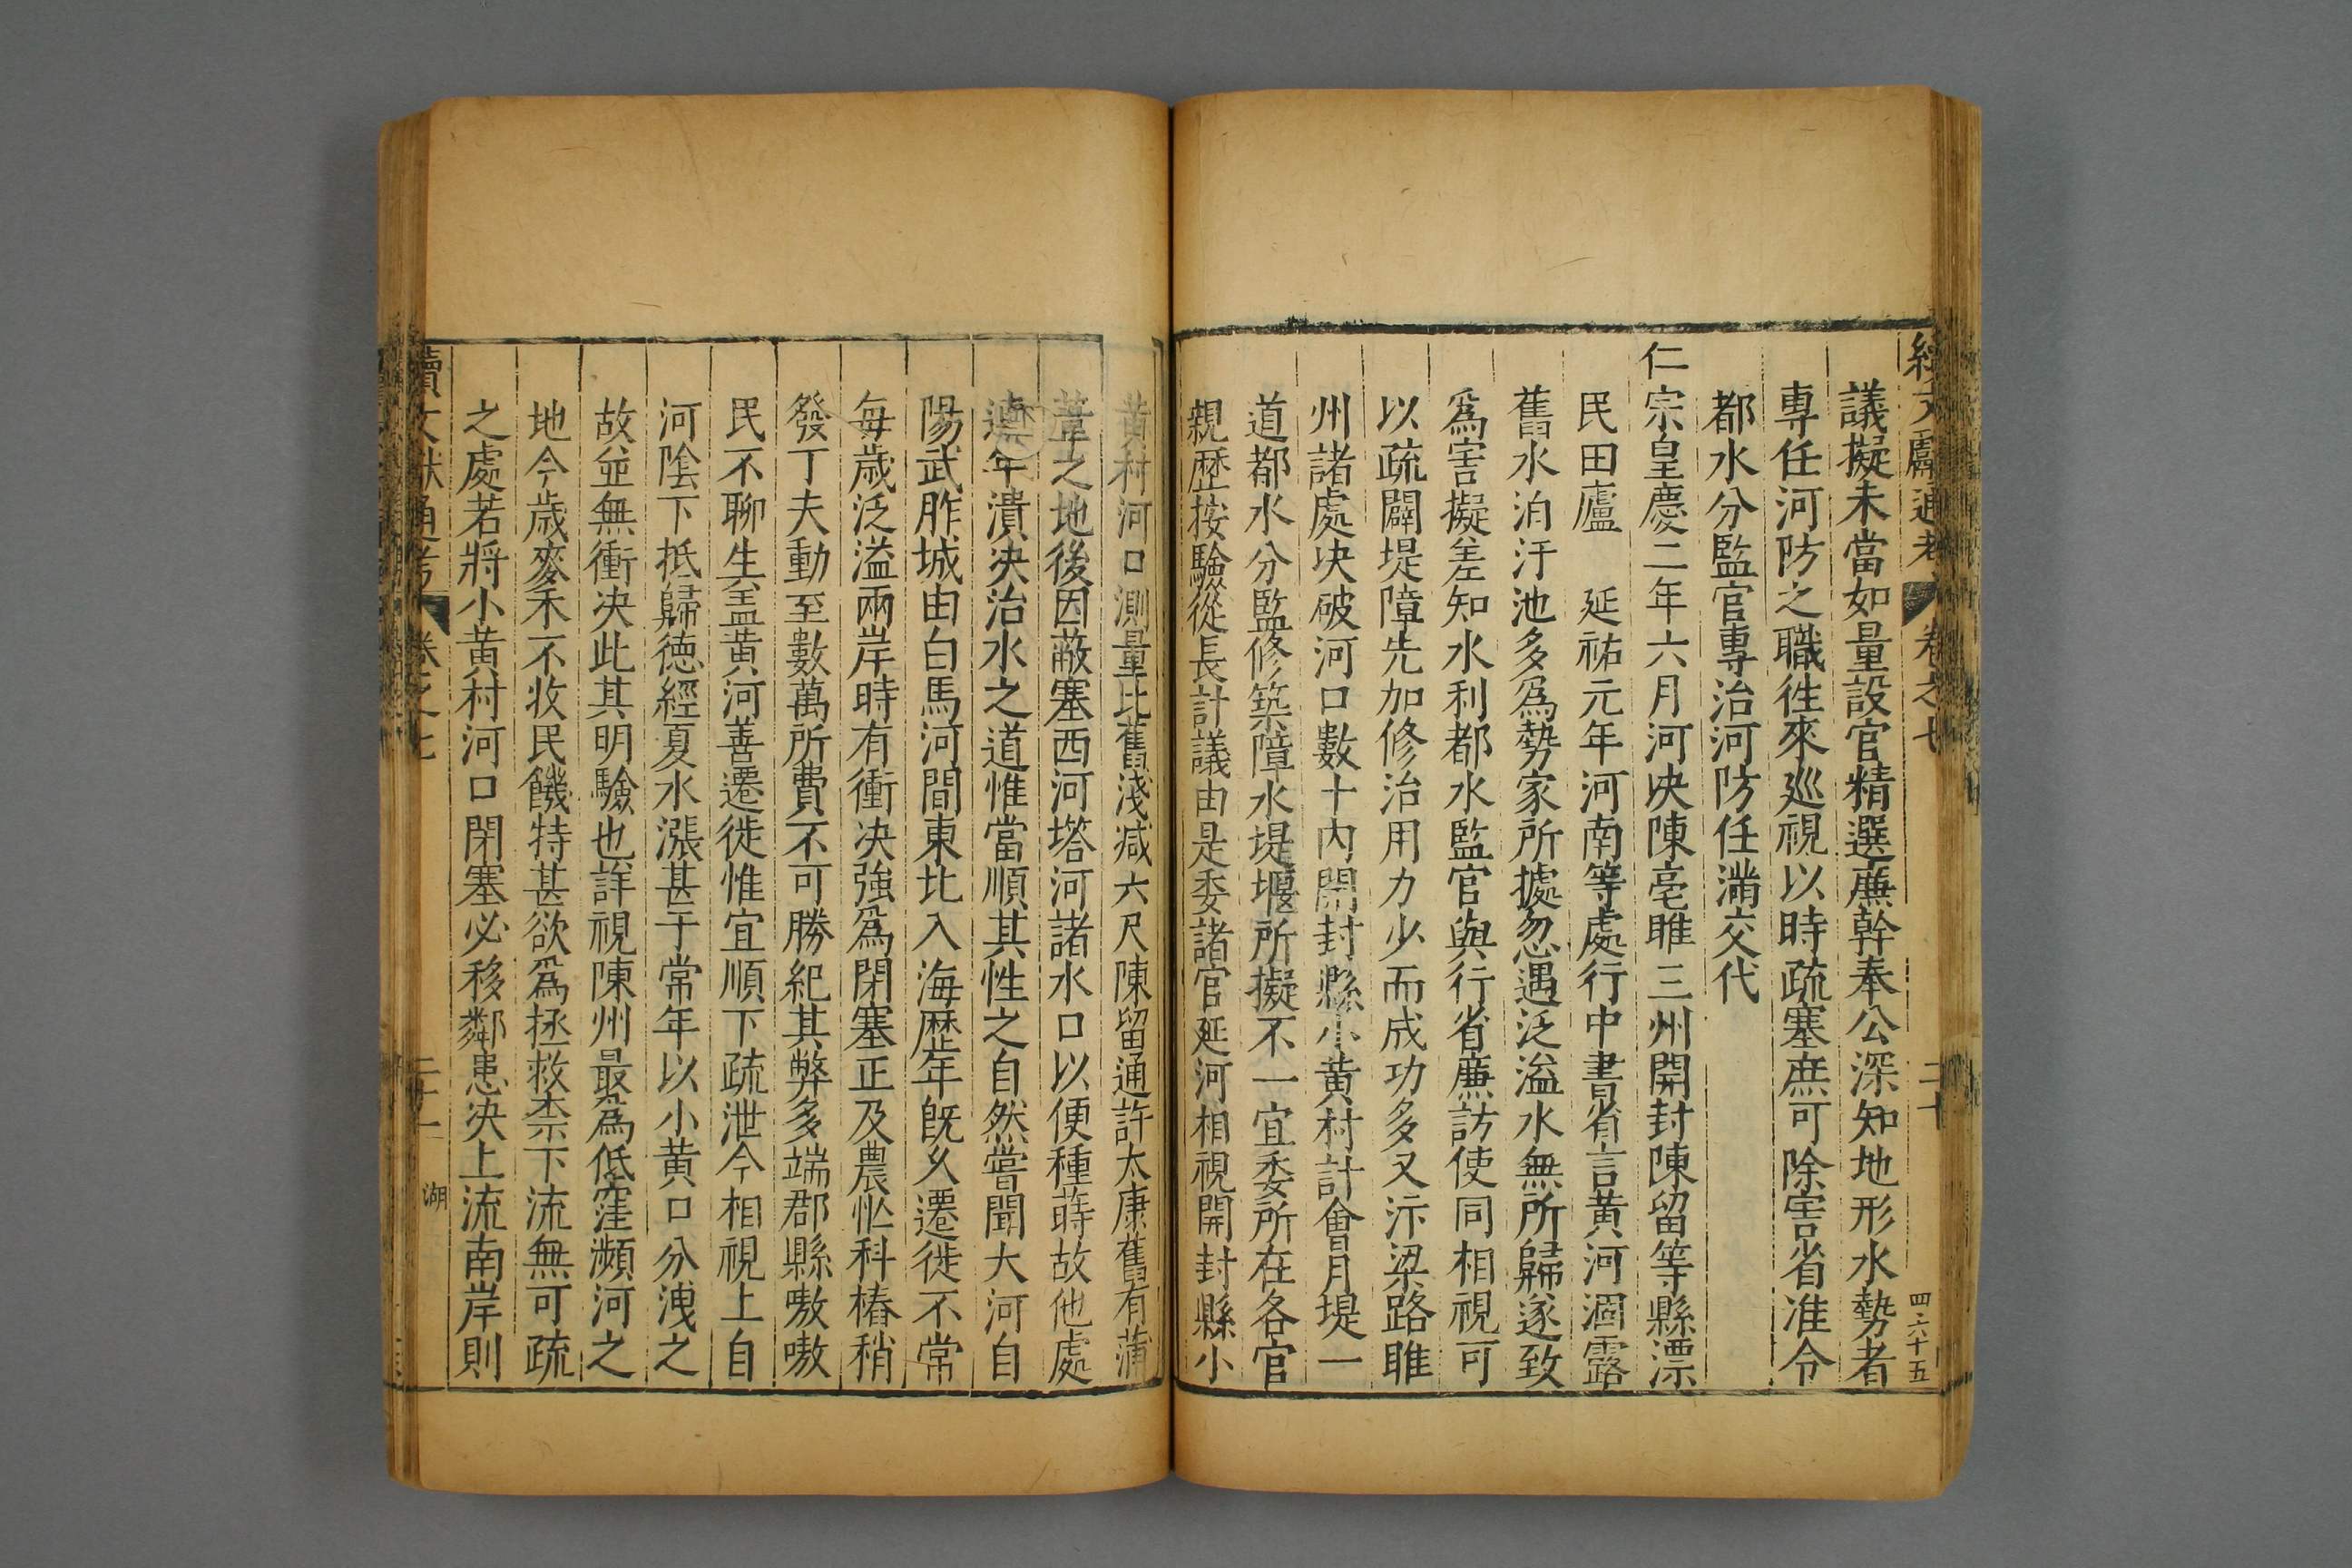 續文獻通考 卷之七 二十 四六十五
議擬未當如量設官精選亷幹奉公深知地形水勢者
專任河防之職徃來廵視以時疏塞庶可除害省准令
都水分監官專治河防任滿交代
仁宗皇慶二年六月河决陳亳睢三州開封陳留等縣漂
民田廬 延祐元年河南等處行中書省言黄河涸露
舊水泊汙池多爲勢家所據忽遇泛溢水無所歸遂致
爲害擬差知水利都水監官與行省亷訪使同相視可
以疏闢堤障先加修治用力少而成功多又汴梁路睢
州諸處决破河口數十内開封縣小黄村計會月堤一
道都水分監修築障水堤堰所擬不一宜委所在各官
親歴按驗從長計議由是委諸官延河相視開封縣小
黄村河口測量比舊淺减六尺陳留通許太康舊有蒲
葦之地後因蔽塞西河塔河諸水口以便種蒔故他處
連年潰决治水之道惟當順其性之自然嘗聞大河自
陽武胙城由白馬河間東北入海歴年旣乆遷徙不常
每歳泛溢兩岸時有衝决強爲閉塞正及農忙科樁稍
發丁夫動至數萬所費不可勝紀其弊多端郡縣嗷嗷
民不聊生盖黄河善遷徙惟宜順下疏泄今相視上自
河隂下抵歸徳經夏水漲甚于常年以小黄口分洩之
故並無衝决此其明驗也詳視陳州最爲低窪瀕河之
地今歳麥禾不收民饑特甚欲爲拯救柰下流無可疏
之處若將小黄村河口閉塞必移鄰患决上流南岸則
續文獻通考 卷之七 二十一 湖